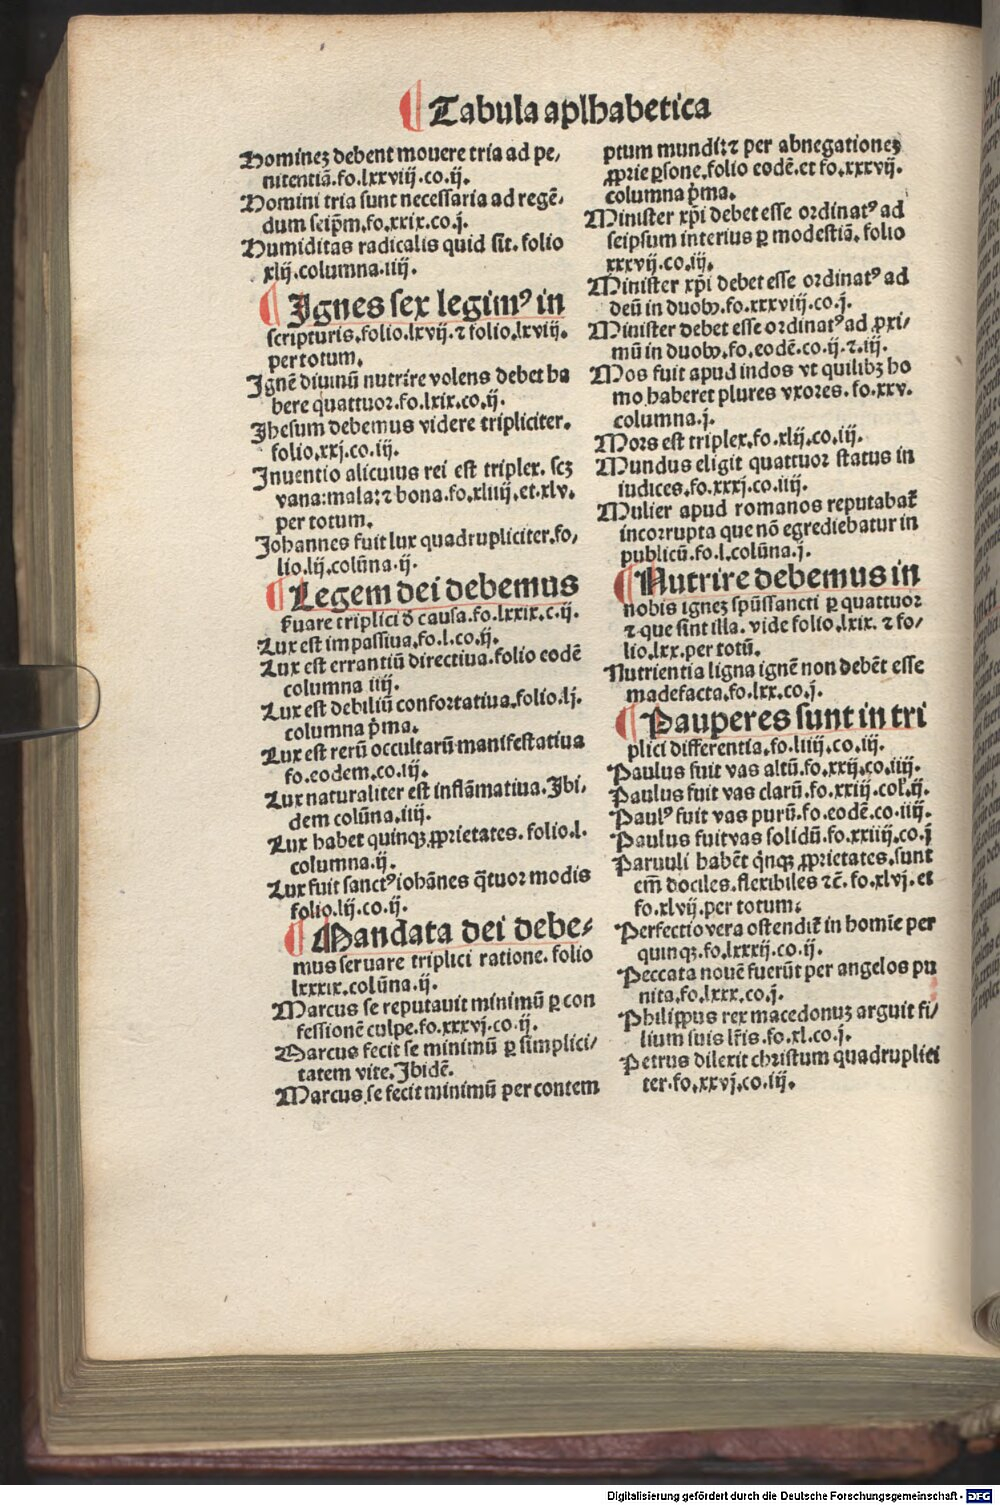 Tabula aplhabetica
Hominez debent mouere tria ad pe/
nitentiā.fo.lxxviij.co.ij.
Homini tria sunt necessaria ad regē/
dum seip̄m.fo.xxix.co.j.
Humiditas radicalis quid sit. folio
xlij.columna.iiij.
Ignes sex legimꝰ in
scripturis.folio.lxvij.⁊ folio.lxviij.
per totum.
Ignē diuinū nutrire volens debet ha
bere quattuor.fo.lxix.co.ij.
Ihesum debemus videre tripliciter.
folio.xxj.co.iij.
Inuentio alicuius rei est triplex. scꝫ
vana:mala:⁊ bona.fo.xliiij.et.xlv.
per totum.
Johannes fuit lux quadrupliciter.fo/
lio.lij.colūna.ij.
Legem dei debemus
ẜuare triplici ð causa.fo.lxxix.c.ij.
Lux est impassiua.fo.l.co.ij.
Lux est errantiū directiua.folio eodē
columna iiij.
Lux est debiliū confortatiua.folio.lj.
columna p̄ma.
Lux est rerū occultarū manifestatiua
fo.eodem.co.iij.
Lux naturaliter est inflāmatiua. Ibi/
dem colūna.iiij.
Lux habet quinqꝫ ꝓprietates. folio.l.
columna.ij.
Lux fuit sanctꝰ iohānes q̄tuor modis
folio.lij.co.ij.
Mandata dei debe/
mus seruare triplici ratione. folio
lxxxix.colūna.ij.
Marcus se reputauit minimū ꝑ con
fessionē culpe.fo.xxxvj.co.ij.
Marcus fecit se minimū ꝑ simplici/
tatem vite. Ibidē.
Marcus se fecit minimū per contem
ptum mundi:⁊ per abnegationeꝫ
ꝓprie ꝑsone.folio eodē.et fo.xxxvij.
columna p̄ma.
Minister xp̄i debet esse ordinatꝰ ad
seipsum interius ꝑ modestiā. folio
xxxvij.co.iij.
Minister xp̄i debet esse ordinatꝰ ad
deū in duobꝫ.fo.xxxviij.co.j.
Minister debet esse ordinatꝰ ad ꝓxi/
mū in duobꝫ.fo.eodē.co.ij.⁊.iij.
Mos fuit apud indos vt quilibꝫ ho
mo haberet plures vxores. fo.xxv.
columna.j.
Mors est triplex.fo.xlij.co.iij.
Mundus eligit quattuor status in
iudices.fo.xxxj.co.iiij.
Mulier apud romanos reputabat̄
incorrupta que nō egrediebatur in
publicū.fo.l.colūna.j.
Nutrire debemus in
nobis ignez sp̄ūssancti ꝑ quattuor
⁊ que sint illa. vide folio.lxix. ⁊ fo/
lio.lxx.per totū.
Nutrientia ligna ignē non debēt esse
madefacta.fo.lxx.co.j.
Pauperes sunt in tri
plici differentia.fo.liiij.co.iij.
Paulus fuit vas altū.fo.xxij.co.iiij.
Paulus fuit vas clarū.fo.xxiij.col̄.ij.
Paulꝰ fuit vas purū.fo.eodē.co.iiij.
Paulus fuit vas solidū.fo.xxiiij.co.j
Paruuli habēt q̇nqꝫ ꝓprietates.sunt
em̄ dociles.flexibiles ⁊c̄. fo.xlvj. et
fo.xlvij.per totum.
Perfectio vera ostendit̄ in homīe per
quinqꝫ.fo.lxxxij.co.ij.
Peccata nouē fuerūt per angelos pu
nita.fo.lxxx.co.j.
Philippus rex macedonuꝫ arguit fi/
lium suis lr̄is.fo.xl.co.j.
Petrus dilexit christum quadruplici
ter.fo.xxvj.co.iij.
Digitalisierung gefördert durch die Deutsche Forschungsgemeinschaft - DFG